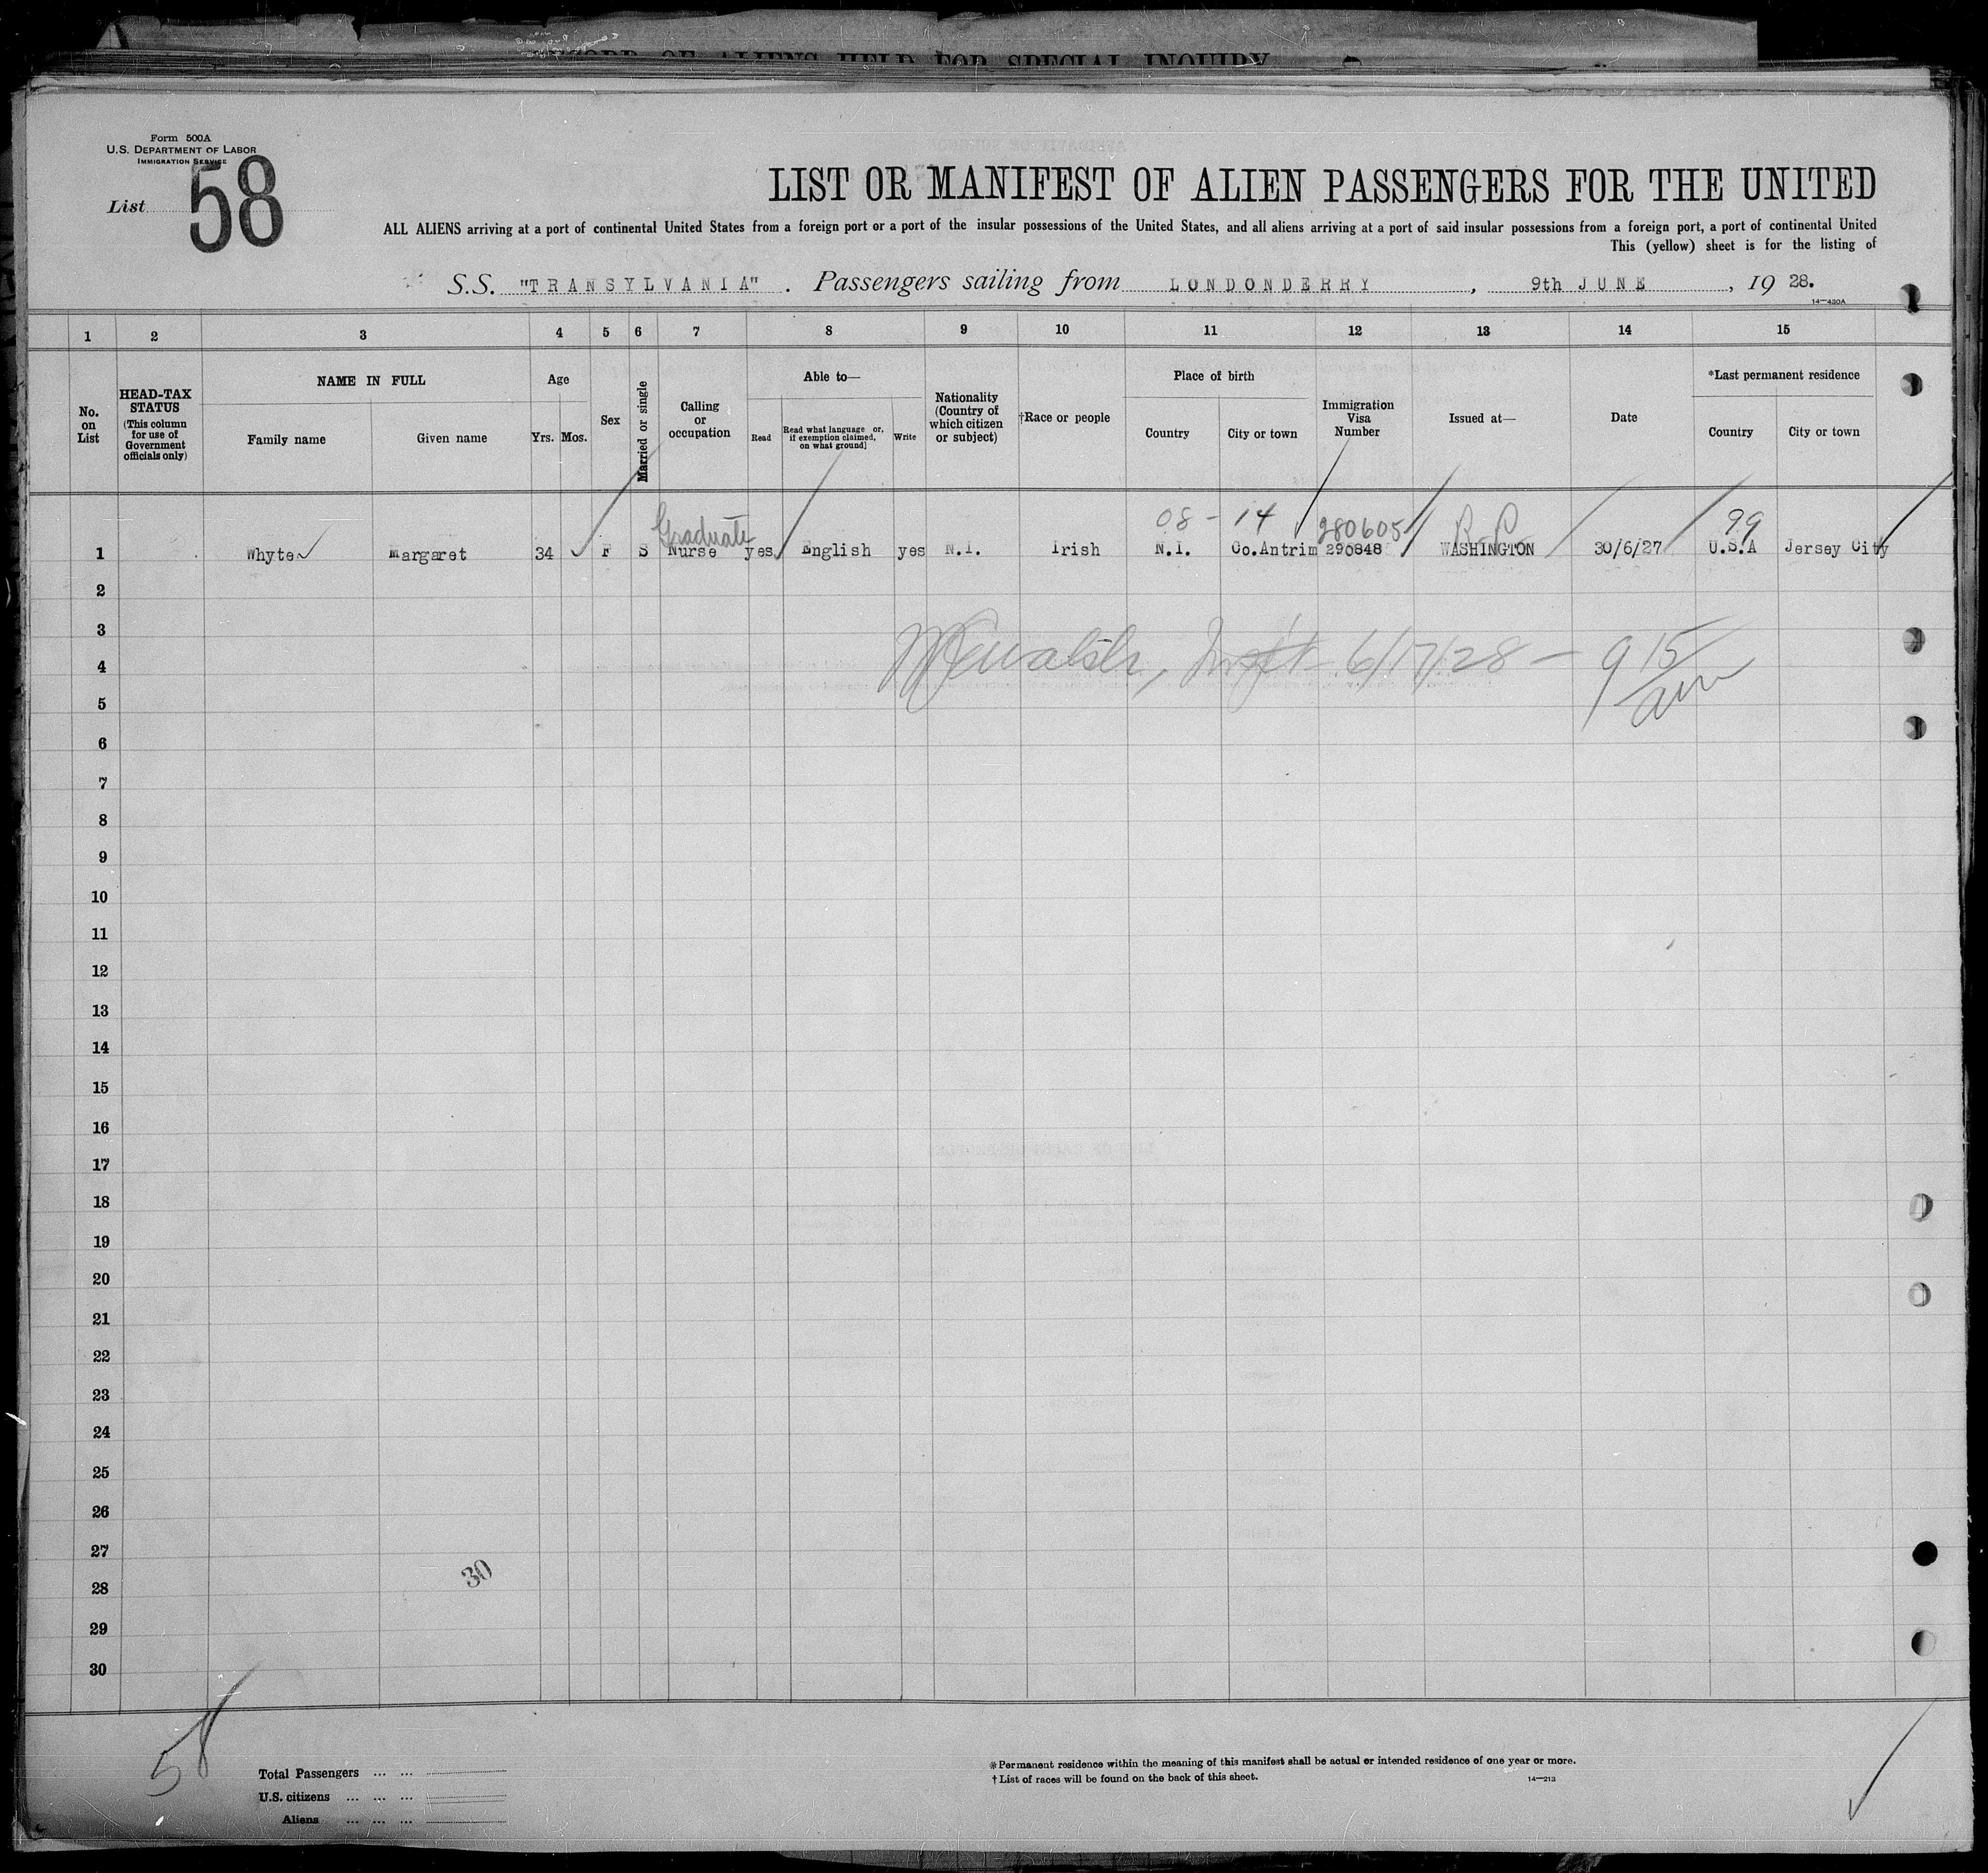 RECORD OF ALIENS HELD FOR SPECIAL INQUIRY
Form 500A
U.S. DEPARTMENT OF LABOR
IMMIGRATION SERVICE
List 58
LIST OR MANIFEST OF ALIEN PASSENGERS FOR THE UNITED
ALL ALIENS arriving at a port of continental United States from a foreign port or a port of the insular possessions of the United States, and all aliens arriving at a port of said insular possessions from a foreign port, a port of continental United
This (yellow) sheet is for the listing of
S.S. "TRANSYLVANIA". Passengers sailing from LONDONDERRY, 9th JUNE, 19 28.
14—430A
1 2 3 4 5 6 7 8 9 10 11 12 13 14 15
No. on List
HEAD-TAX STATUS (This column for use of Government officials only)
NAME IN FULL
Family name Given name
Age
Yrs. Mos.
Sex
Married or single
Calling or occupation
Able to—
Read Read what language or, if exemption claimed, on what ground] Write
Nationality (Country of which citizen or subject)
†Race or people
Place of birth
Country City or town
Immigration Visa Number
Issued at—
Date
*Last permanent residence
Country City or town
Graduate 08 - 14 280605 R.P. 99
1 Whyte Margaret 34 F S Nurse yes English yes N.I. Irish N.I. Co.Antrim 290848 WASHINGTON 30/6/27 U.S.A Jersey City
2
3
4 Walsh, Insp't 6/17/28 — 9 15/am
5
6
7
8
9
10
11
12
13
14
15
16
17
18
19
20
21
22
23
24
25
26
27
30
28
29
30
58
Total Passengers ... ...
U.S. citizens ... ... ...
Aliens ... ... ...
*Permanent residence within the meaning of this manifest shall be actual or intended residence of one year or more.
†List of races will be found on the back of this sheet.
14—213